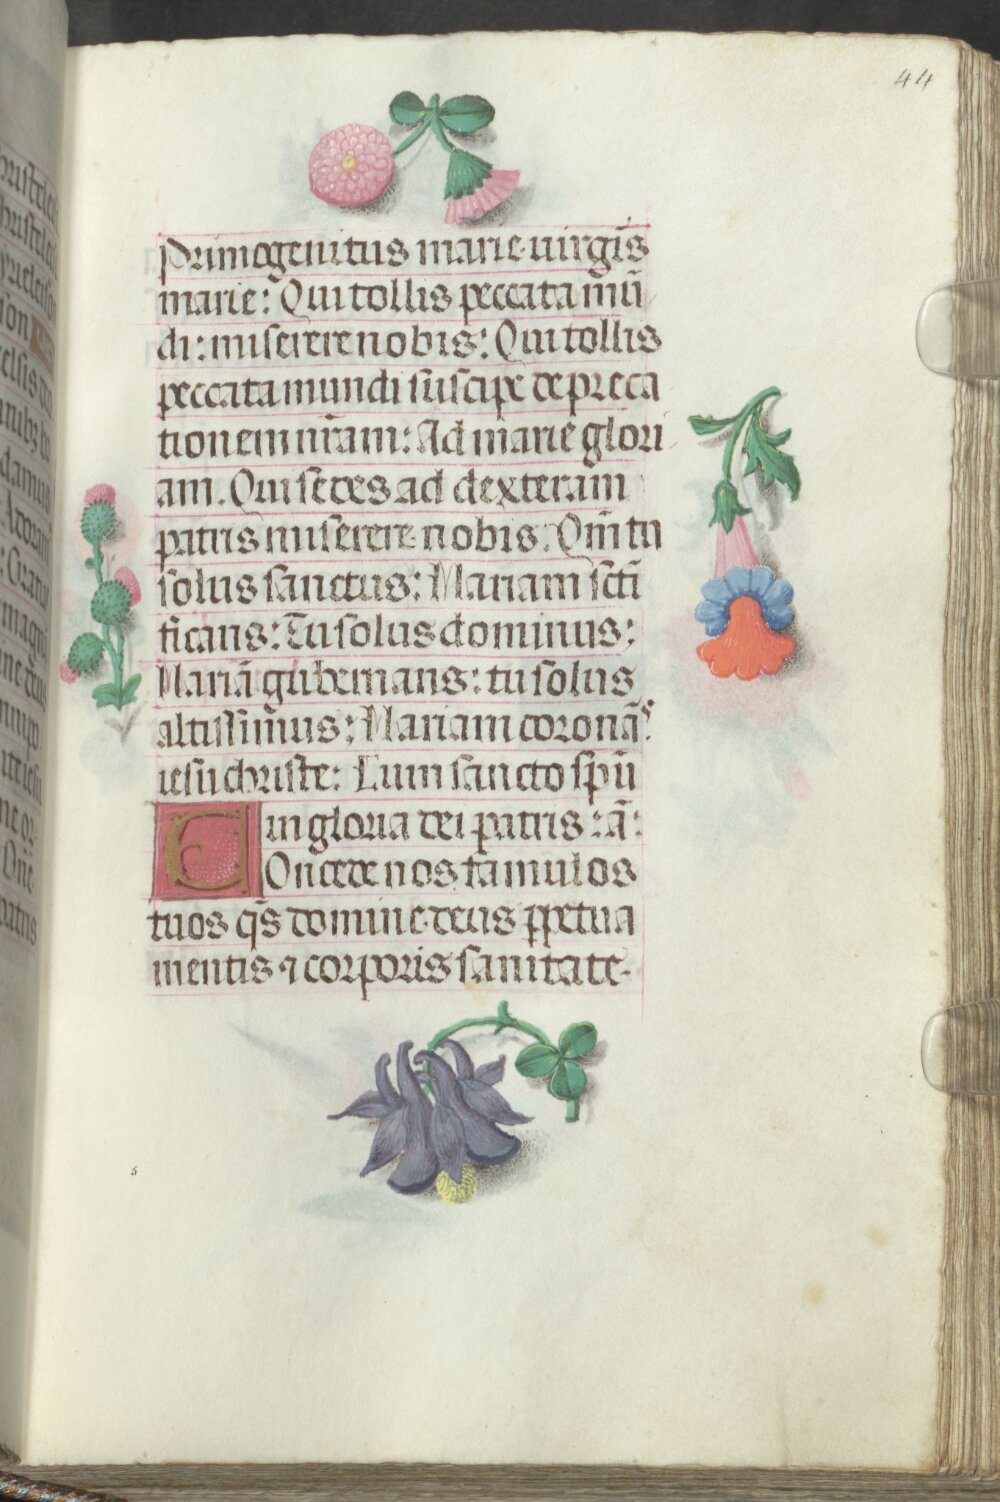 44
primogenitus marie virgis̄
marie: Qui tollis peccata mū
di: miserere nobis: Qui tollis
peccata mundi suscipe depreca
tionem nr̄am: Ad marie glori
am. Qui sedes ad dexteram
patris miserere nobis. Qm̄ tu
solus sanctus: Mariam scti
ficans: Tu solus dominus:
Mariā gubernans: tu solus
altissimus: Mariam coronās.
iesu christe: Cum sancto spū
in gloria dei patris: ā:
COncede nos famulos
tuos qs̄ domine deus ppetua
mentis ⁊ corporis sanitate